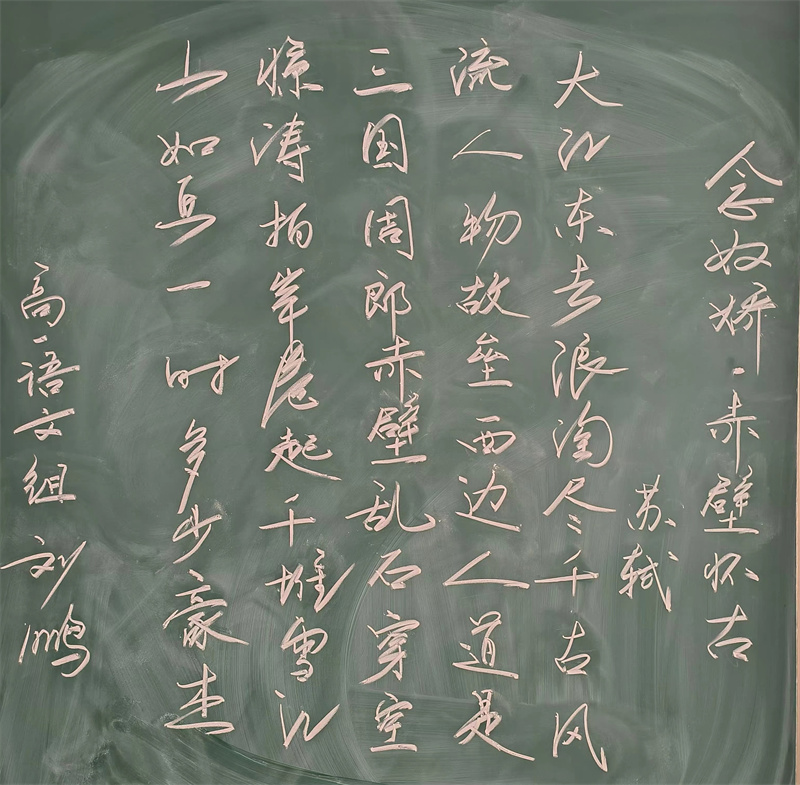 念奴娇·赤壁怀古
苏轼
大江东去浪淘尽千古风
流人物故垒西边人道是
三国周郎赤壁乱石穿空
惊涛拍岸卷起千堆雪江
山如画一时多少豪杰
高一语文组 刘鹏